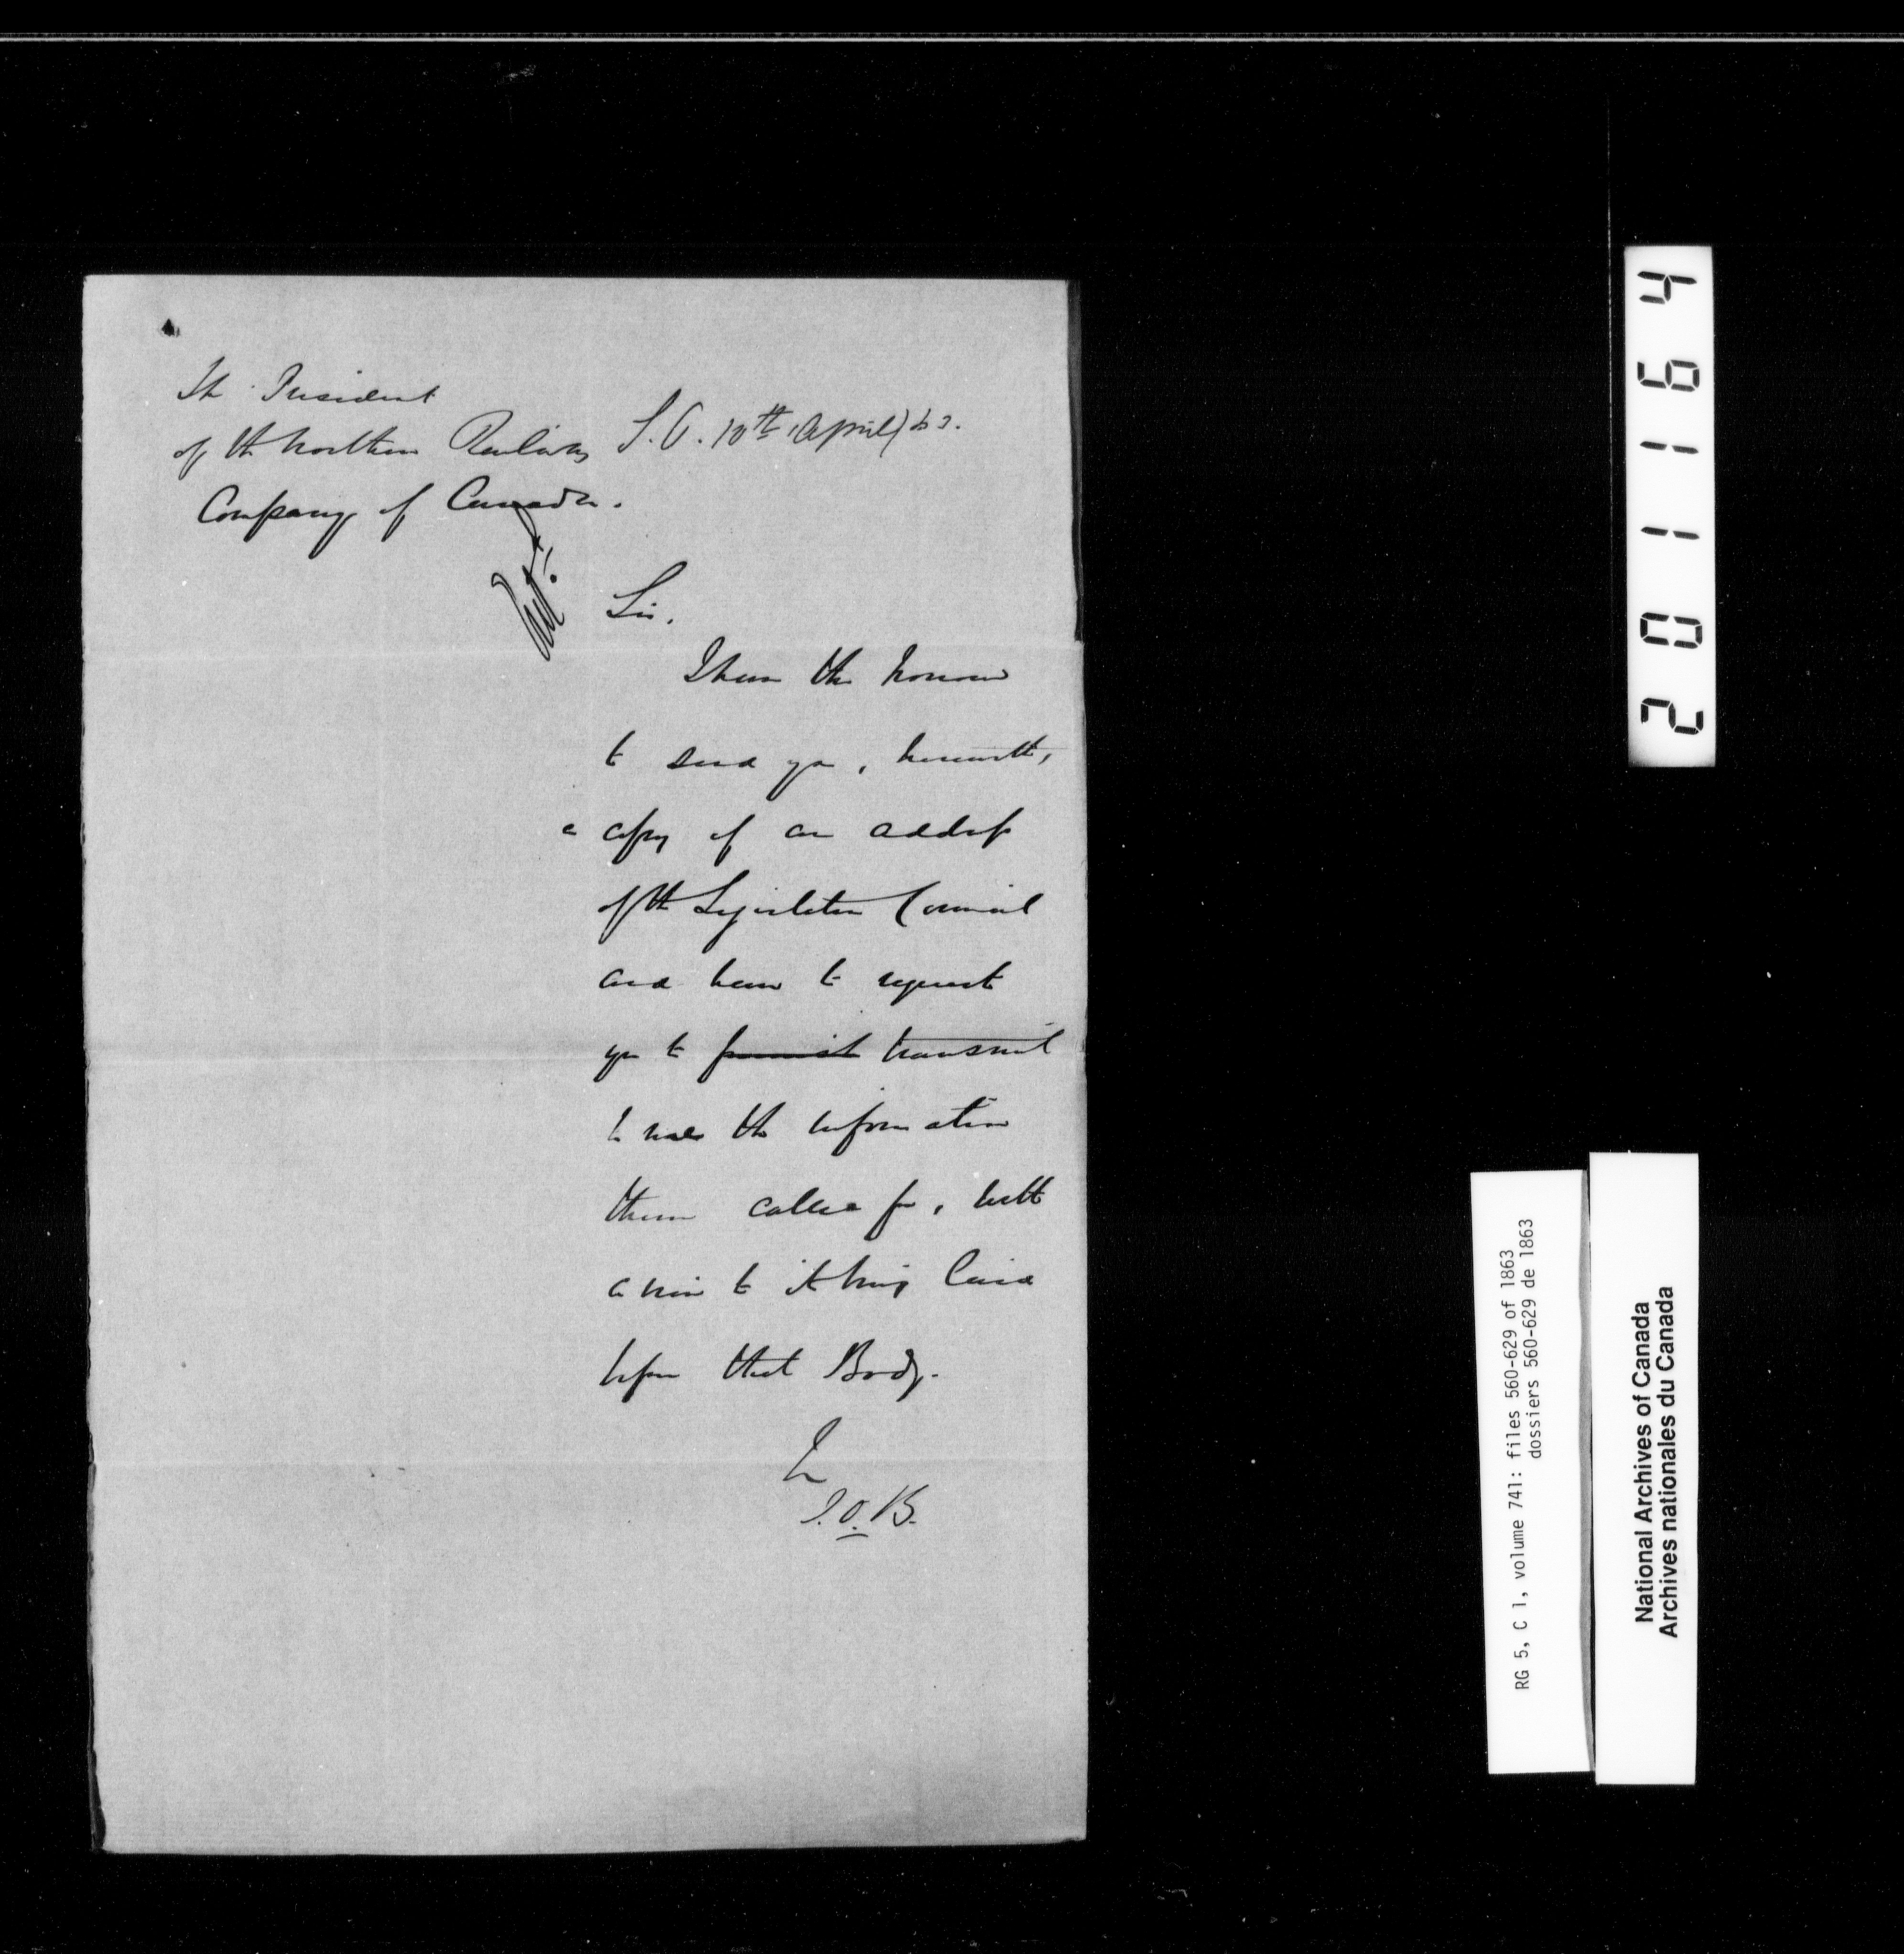 The President
of the Northern Railway
Company of Canada.
S.O. 10th April/63.
Sir.
I have the honour
to send you, herewith,
a copy of an address
of the Legislative Council
and have to request
you to furnish transmit
to me the information
therein called for, with
a view to its being laid
before that Body.
I
I.O.B.
201164
RG 5, C 1, volume 741: files 560-629 of 1863
dossiers 560-629 de 1863
National Archives of Canada
Archives nationales du Canada